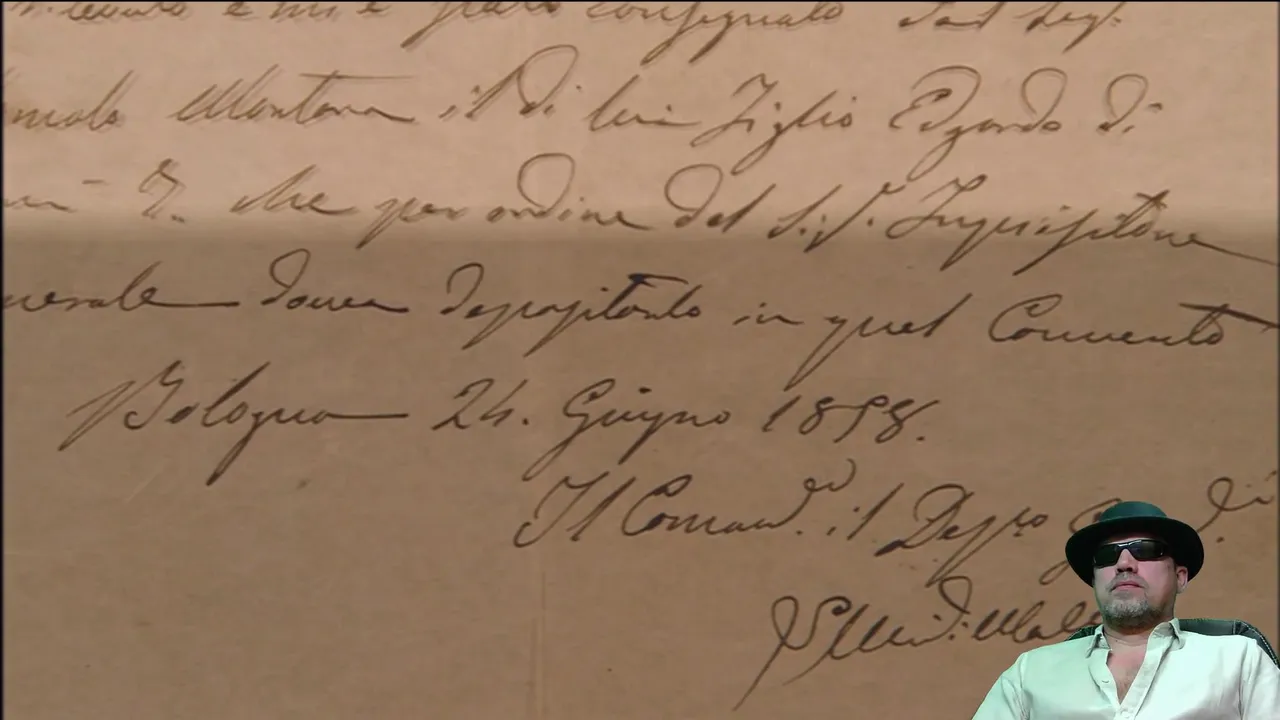 e mi è stato consegnato Dal Sigr.
Mortara il di lui Figlio Edgardo di
che per ordine del Sigr. Inquisitore
dovea depositarlo in quel Convento
Bologna 24. Giugno 1858.
Il Comand. il